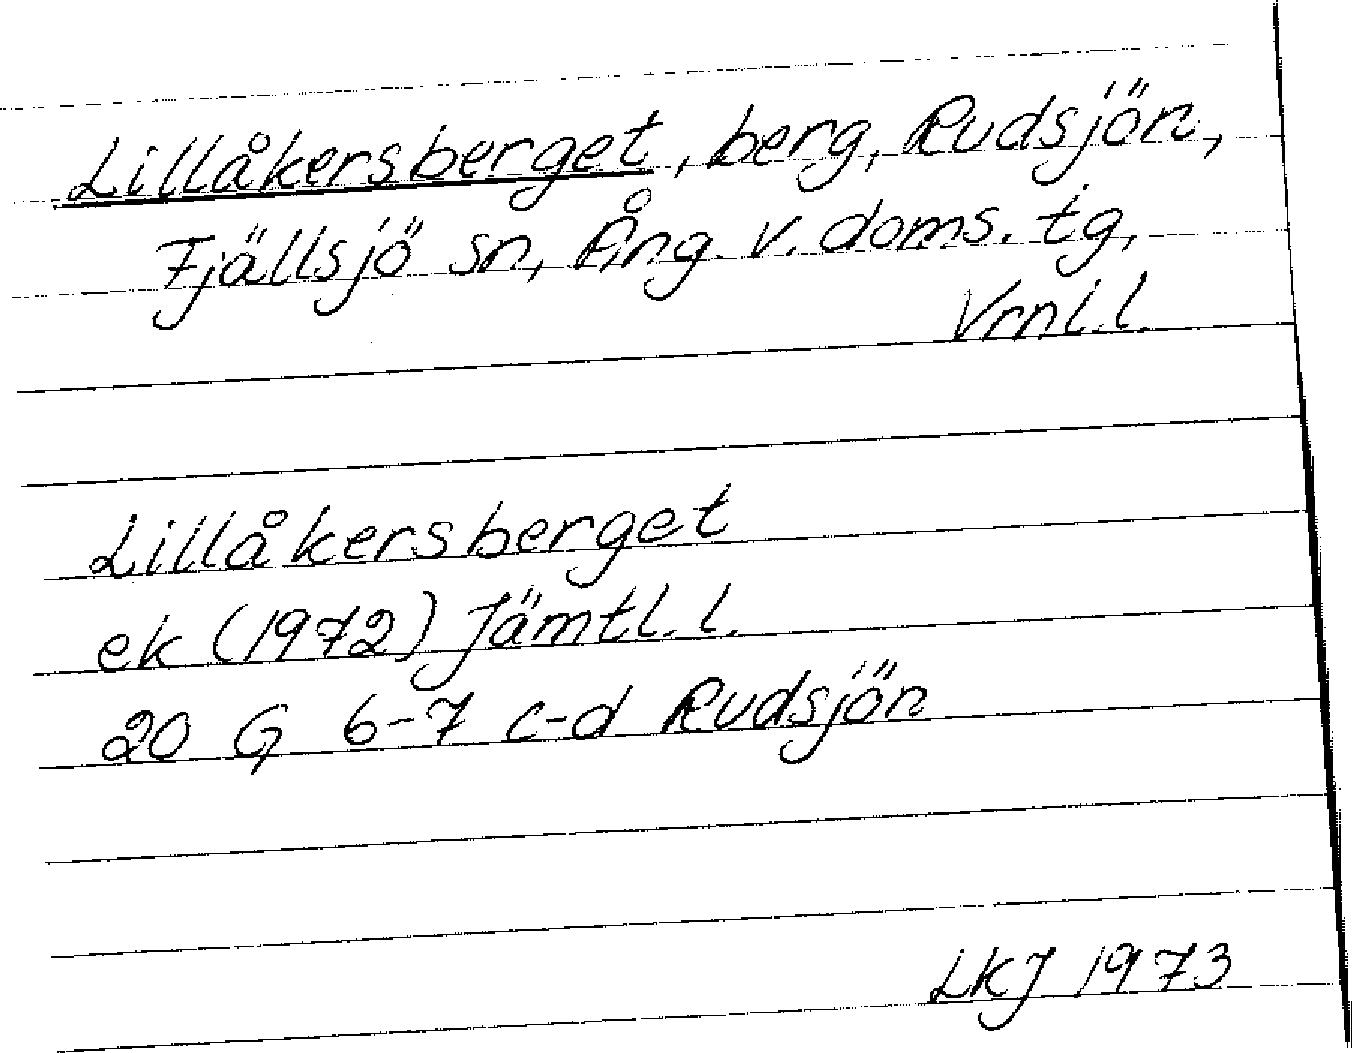 Lillåkersberget, berg, Rudsjön,
Fjällsjö sn, Ång. v. doms. tg,
Vrnl.l.
Lillåkersberget
ek (1972) Jämtl. l.
20 G 6-7 c-d Rudsjön
LKJ 1973